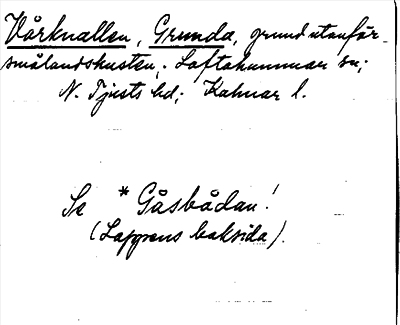 Vårknallen, Grunda, grund utanför
smålandskusten; Loftahammar sn;
N. Tjusts hd; Kalmar l.
Se *Gåsbådan!
(Lappens baksida).